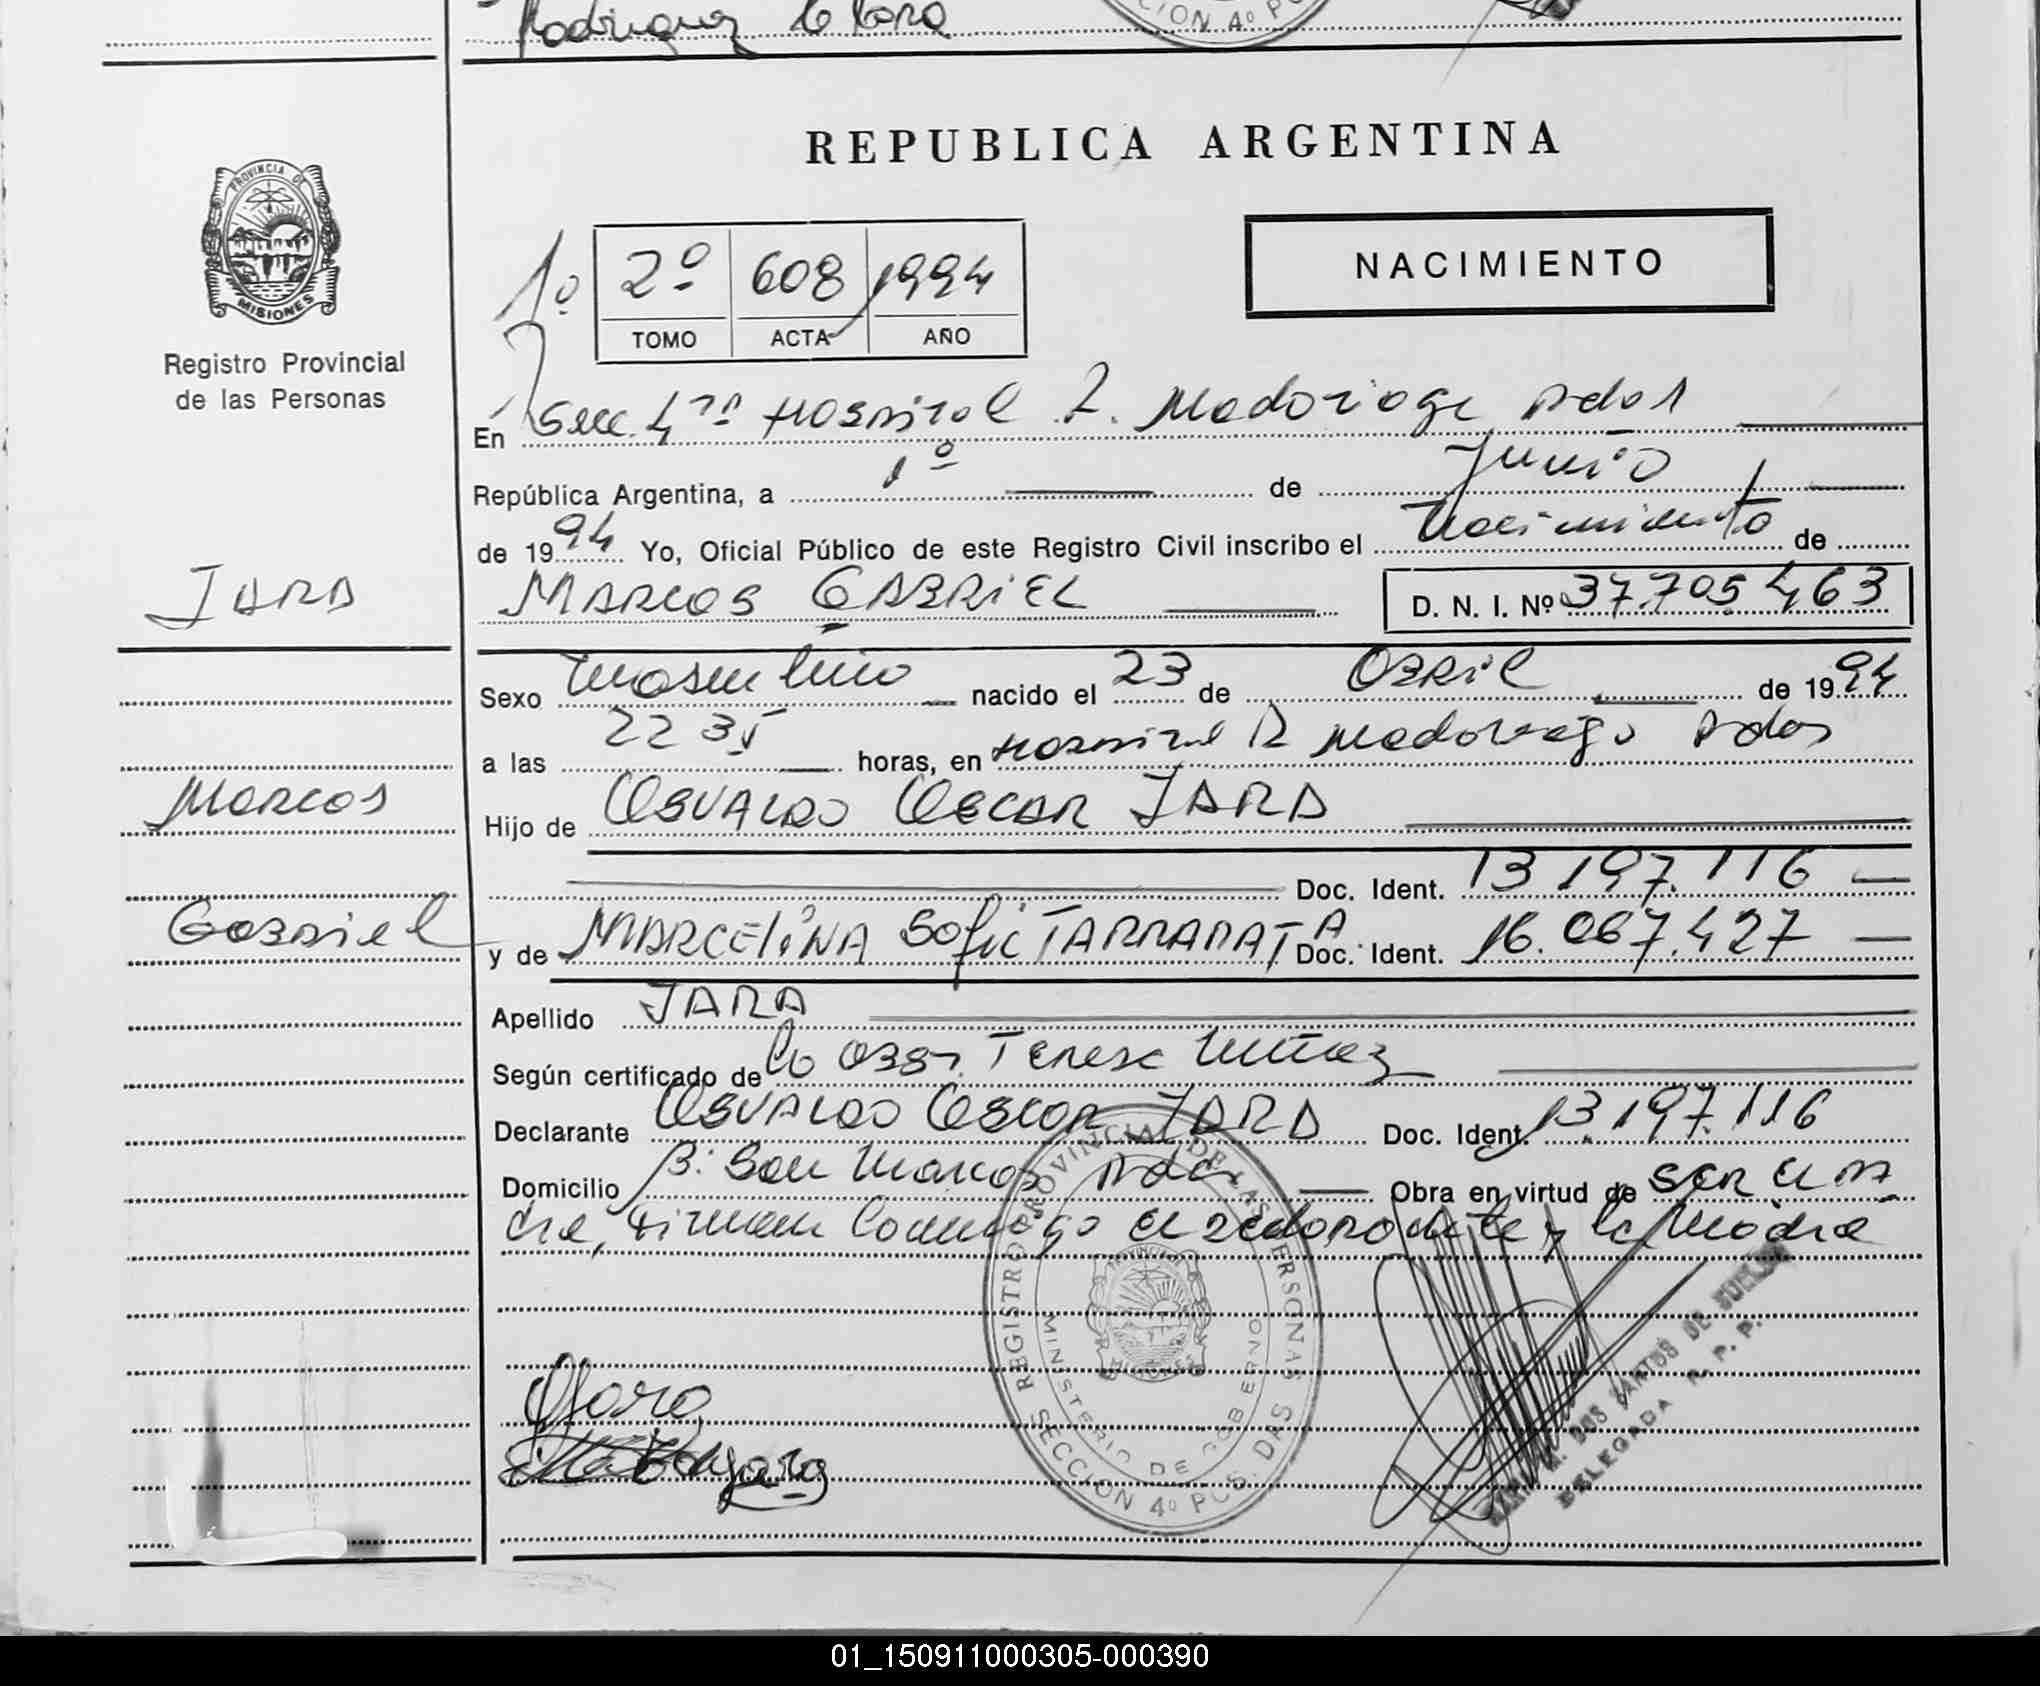 Rodriguez
CION 4º P
REPUBLICA ARGENTINA
PROVINCIA DE
MISIONES
Registro Provincial
de las Personas
NACIMIENTO
1º 2º 608 1994
TOMO ACTA AÑO
En Secc. 4ta Hospital R. Madariaga Pdas
República Argentina, a 1º de Junio
de 1994 Yo, Oficial Público de este Registro Civil inscribo el Nacimiento de
JARA
MARCOS GABRIEL D. N. I. Nº 37.705.463
Sexo Masculino nacido el 23 de Abril de 1994
a las 22 35 horas, en Hospital R Madariaga Pdas
Marcos
Hijo de OSVALDO OSCAR JARA
Doc. Ident. 13.197.116
Gabriel
y de MARCELINA Sofia TARRARATA Doc. Ident. 16.067.427
Apellido JARA
Según certificado de la Obst. Teresa Muñoz
Declarante OSVALDO OSCAR JARA Doc. Ident. 13.197.116
Domicilio B: San Marcos Pdas Obra en virtud de ser el pa
dre, firman conmigo el declarante y la Madre
REGISTRO PROVINCIAL DE LAS PERSONAS
MINISTERIO DE GOBIERNO
MISIONES
SECCION 4º POS. DAS
OJara
DOS SANTOS DE
DELEGADA R. P. P.
01_150911000305-000390